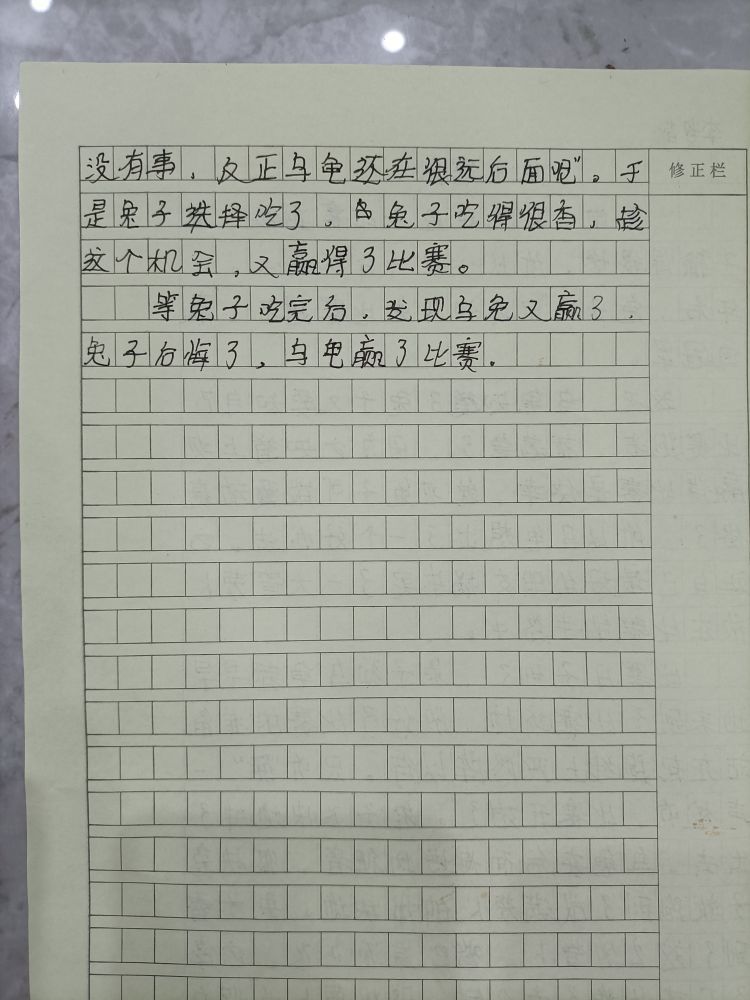 没有事,反正乌龟还在很远后面呢”。于
修正栏
是兔子选择吃了,兔子吃得很香,趁
这个机会,又赢得了比赛。
等兔子吃完后,发现乌兔又赢了,
兔子后悔了,乌龟赢了比赛.